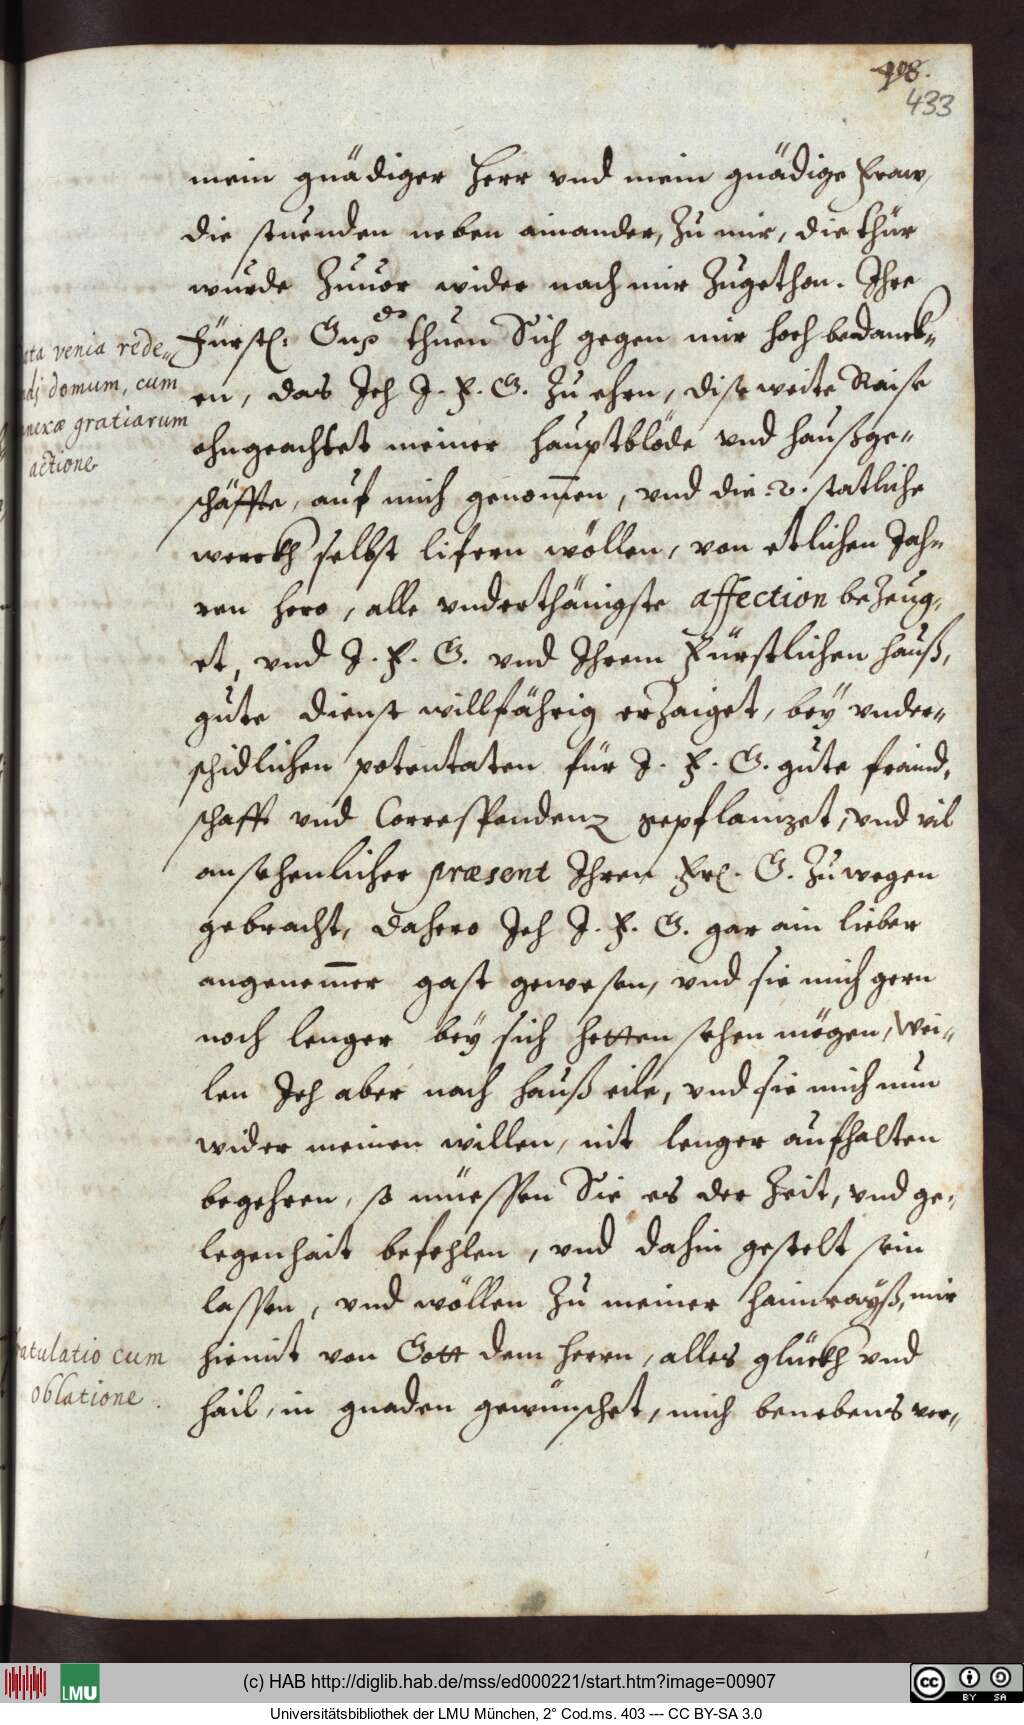 433
mein gnädiger Herr vnd mein gnädige Fraw,
die stuenden neben ainander, Zu mir, die thür
wurde Zuuor wider nach mir Zugethon. Ihre
Fürstl: Gnd thuen Sich gegen mir hoch bedanck-
en, das Ich I. F. G. Zu ehrn, dise weite Raise
ohngeachtet meiner hauptblöde vnd haußge-
schäffte, auf mich genom̄en, vnd die .2. statliche
werckh selbst lifern wöllen, von etlichen Jah-
ren hero, alle vnderthänigste affection beZeug-
et, vnd I. F. G. vnd Ihrem Fürstlichen hauß,
gute dienst willfährig erZaiget, beÿ vnder-
schidlichen potentaten für I. F. G. gute fraind-
schafft vnd Correspondenz gepflanzet, vnd vil
ansehenlicher præsent Ihren Frl. G. Zuwegen
gebracht, dahero Ich I. F. G. gar ain lieber
angenem̄er gast gewesen, vnd sie mich gern
noch lenger beÿ sich hetten sehen mögen, Wei-
len Ich aber nach hauß eile, vnd sie mich nun
wider meinen willen, nit lenger aufhalten
begehren, so müessen Sie es der Zeit, vnd ge-
legenhait befehlen, vnd dahin gestelt sein
lassen, vnd wöllen Zu meiner haimraÿß, mir
hiemit von Gott dem herrn, alles glückh vnd
hail, in gnaden gewünschet, mich benebens ver-
ata venia rede-
domum, cum
nexæ gratiarum
actione
atulatio cum
oblatione.
(c) HAB http://diglib.hab.de/mss/ed000221/start.htm?image=00907
LMU
CC BY SA
Universitätsbibliothek der LMU München, 2° Cod.ms. 403 --- CC BY-SA 3.0